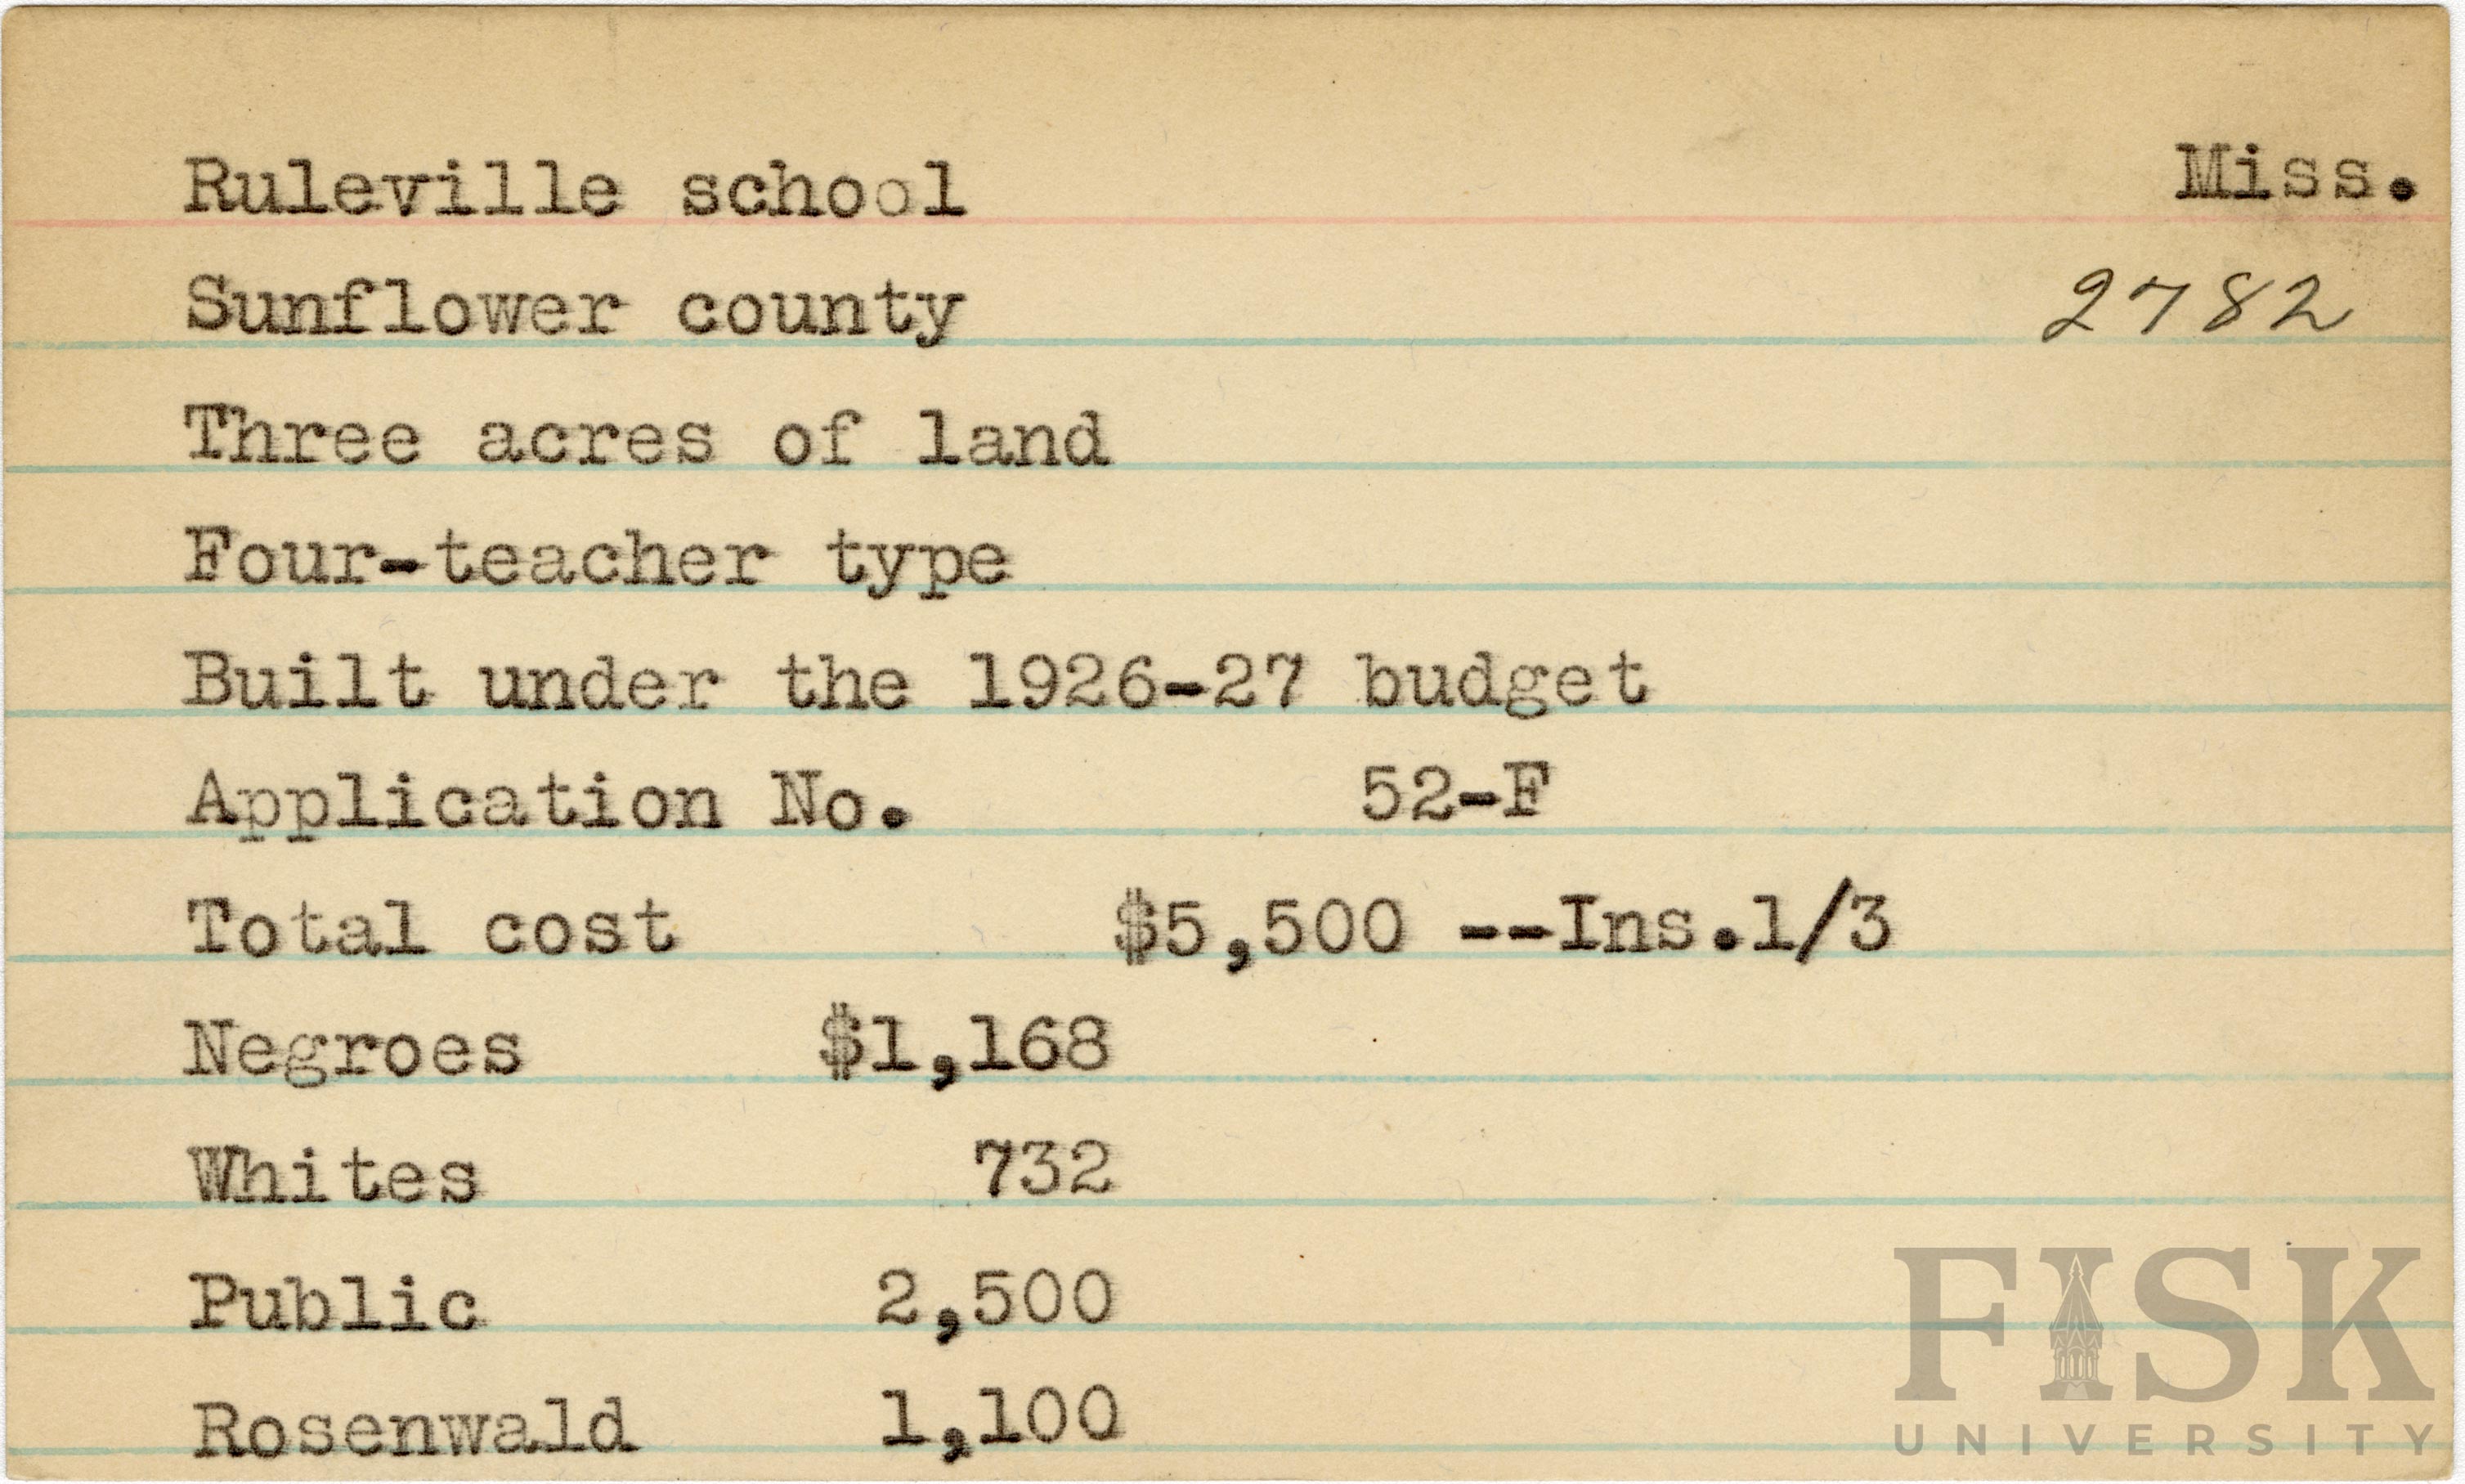 Ruleville school Miss.
Sunflower county 2782
Three acres of land
Four-teacher type
Built under the 1926-27 budget
Application No. 52-F
Total cost $5,500 --Ins.1/3
Negroes $1,168
Whites 732
Public 2,500
Rosenwald 1,100
FISK
UNIVERSITY